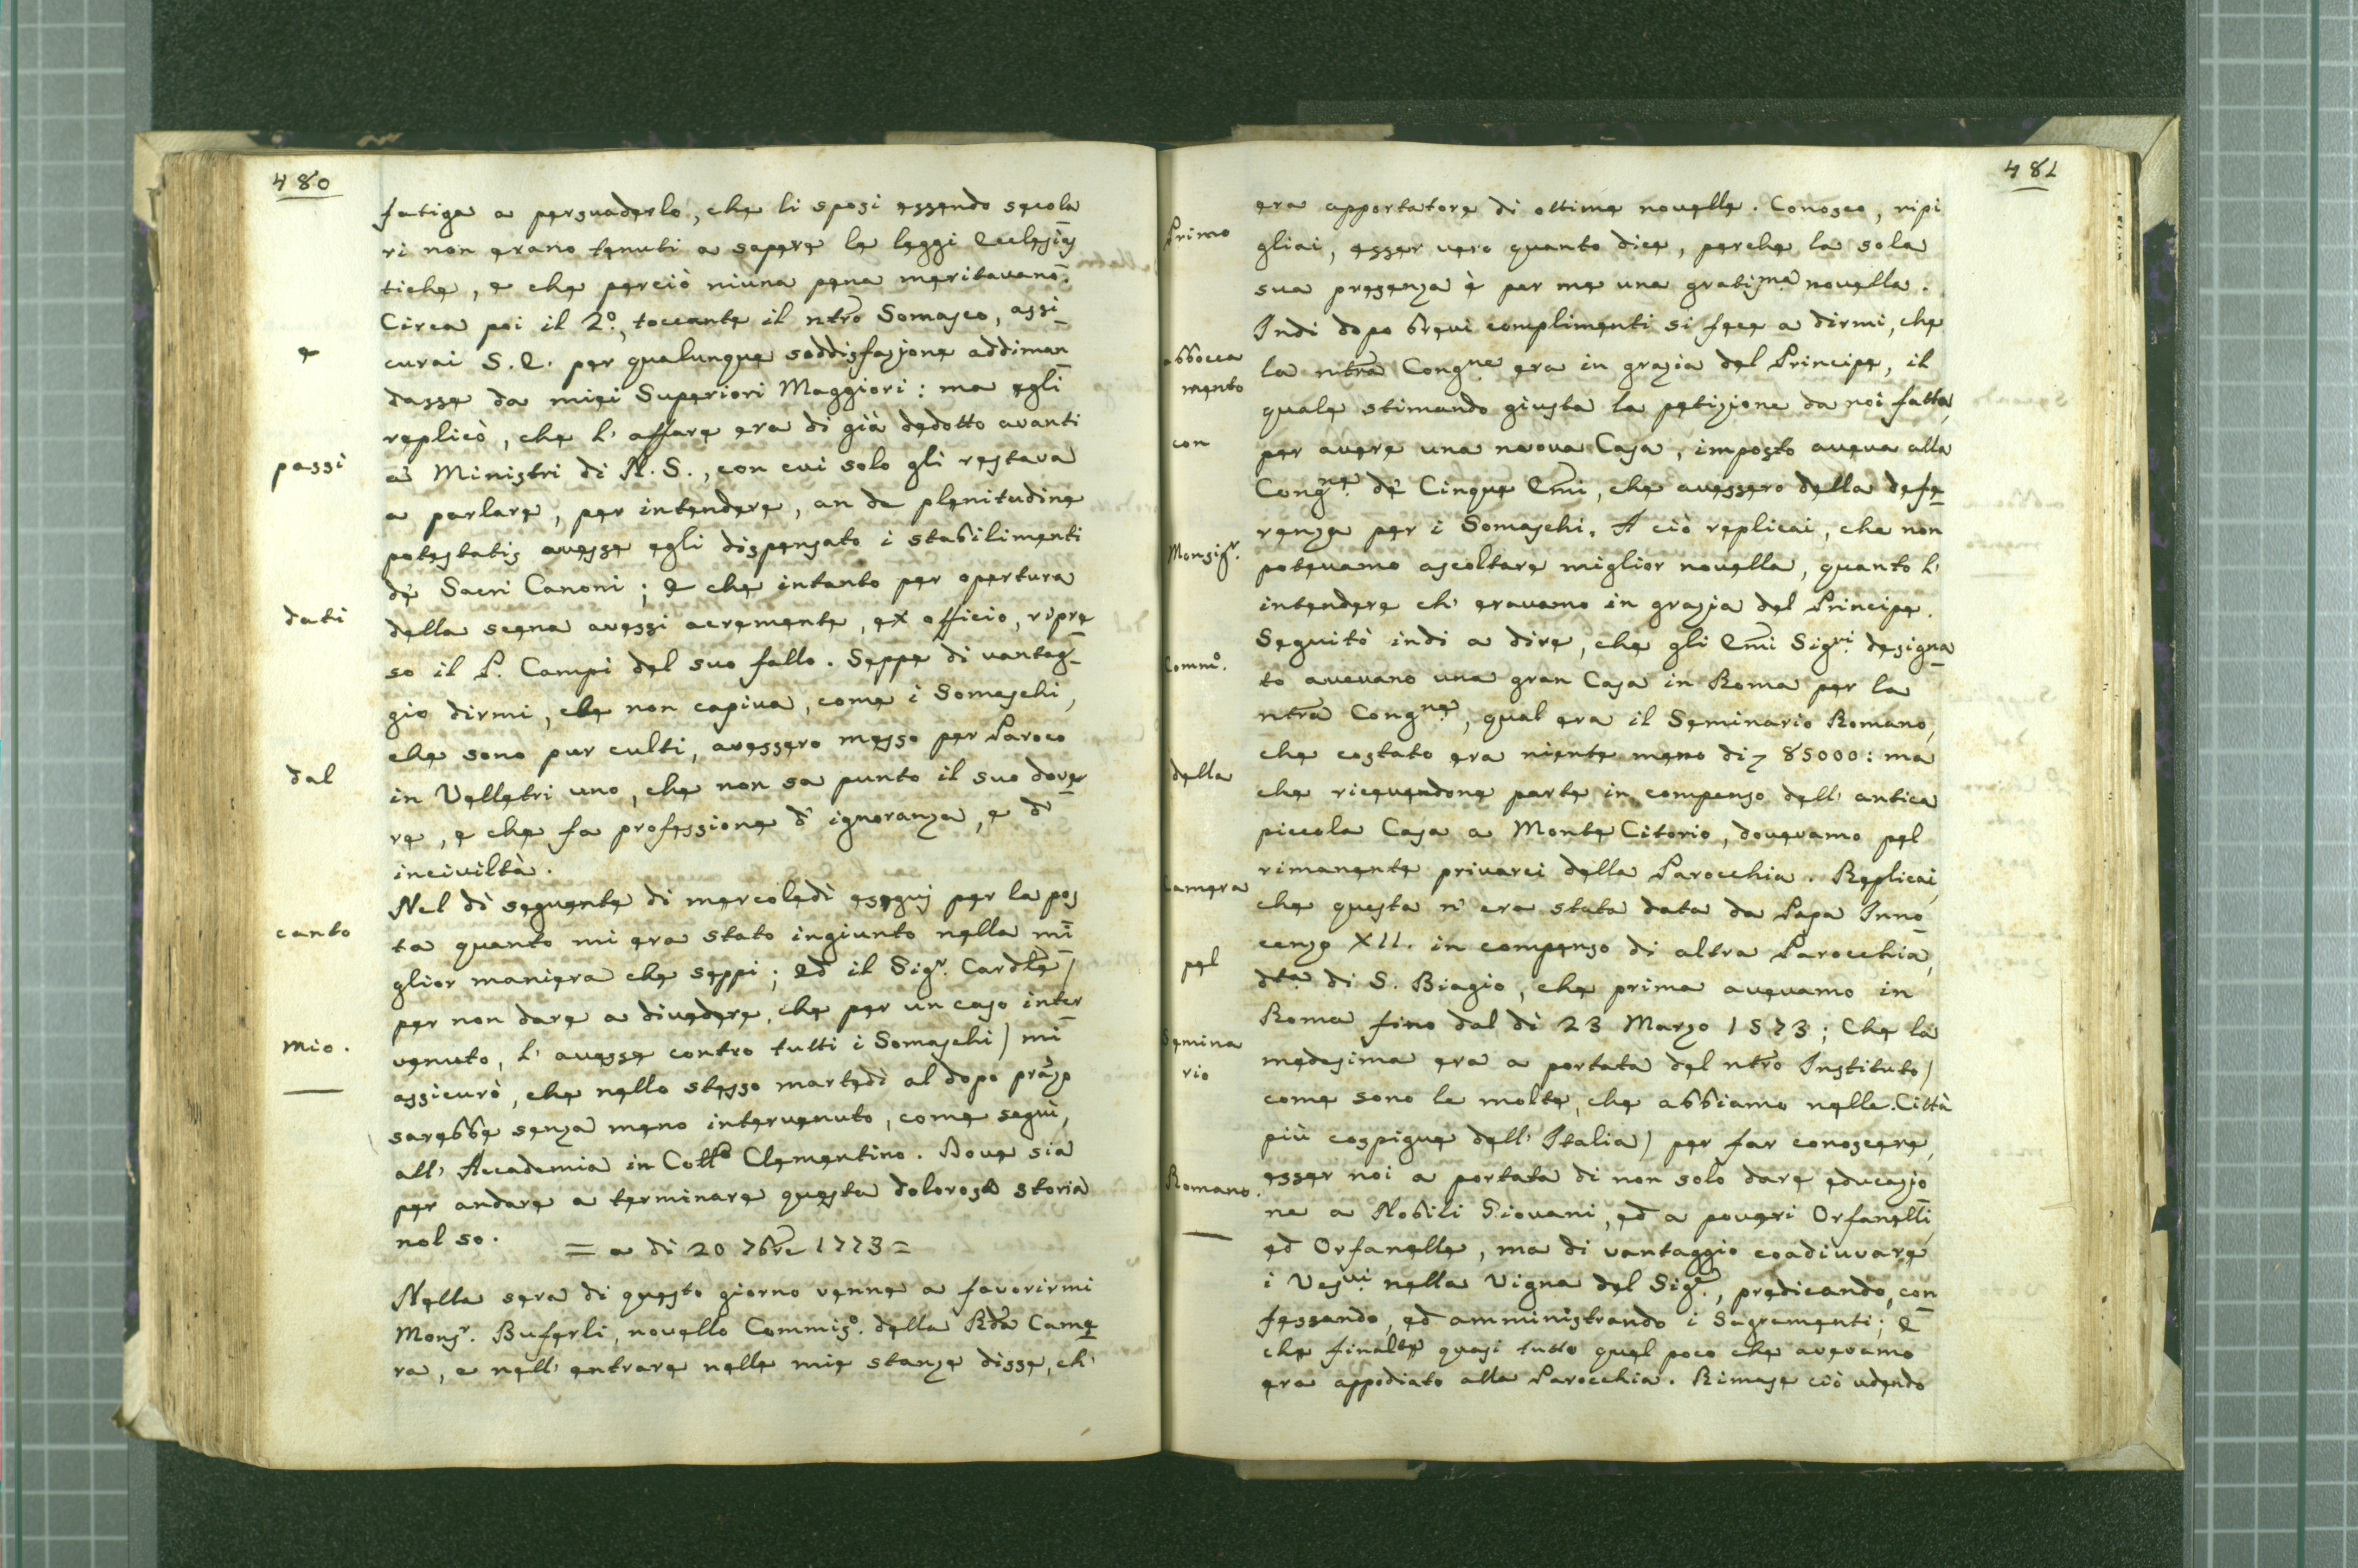 480
fatiga a persuaderlo, che li sposi essendo secola
ri non erano tenuti a sapere le leggi Eclesias
tiche, e che perciò niuna pena meritavano.
Circa poi il 2º, toccante il ntro Somasco, assi
curai S. E. per qualunque soddisfazione addiman
dasse da miei Superiori Maggiori: ma egli
replicò, che l' affare era di già dedotto avanti
à Ministri di N. S., con cui solo gli restava
a parlare, per intendere, an de plenitudine
potestatis avesse egli dispensato i stabilimenti
dè Sacri Canoni; E che intanto per opertura
della scena avessi acremente, ex officio, ripre
so il P. Campi del suo fallo. Seppe di vantag
gio dirmi, che non capiva, come i Somaschi,
che sono pur culti, avessero messo per Paroco
in Velletri uno, che non sa punto il suo dove
re, e che fa professione d' ignoranza, e d'
inciviltà.
Nel dì seguente di mercoledì eseguij per la pos
ta quanto mi era stato ingiunto nella mi
glior maniera che seppi; Ed il Sigr. Cardle /
per non dare a divedere, che per un caso inter
venuto, l' avesse contro tutti i Somaschi / mi
assicurò, che nello stesso martedì al dopo pranzo
sarebbe senza meno intervenuto, come seguì,
all' Accademia in Collo Clementino. Dove sia
per andare a terminare questa dolorosa storia
nol so.
= a dì 20 7bre 1773 =
Nella sera di questo giorno venne a favorirmi
Monsr. Buferli, novello Commiso. della Rda Came
ra, e nell' entrare nelle mie stanze disse, ch'
e
passi
dati
dal
canto
mio.
481
era apportatore di ottime novelle. Conosco, ripi
gliai, esser vero quanto dice, perche la sola
sua presenza è per me una gratisma novella.
Indi dopo brevi complimenti si fece a dirmi, che
la ntra Congne era in grazia del Principe, il
quale stimando giusta la petizione da noi fatta,
per avere una nuova Casa, imposto aveva alla
Congne. dè Cinque Emi, che avessero della defe
renza per i Somaschi. A ciò replicai, che non
potevamo ascoltare miglior novella, quanto l'
intendere ch' eravamo in grazia del Principe.
Seguitò indi a dire, che gli Emi Sigri. designa
to avevano una gran Casa in Roma per la
ntra Congne, qual era il Seminario Romano,
che costato era niente meno di 85000: ma
che ricevendone parte in compenso dell' antica
piccola Casa a Monte Citorio, dovevamo pel
rimanente privarci della Parocchia. Replicai,
che questa n' era stata data da Papa Inno
cenzo XII. in compenso di altra Parocchia,
dta di S. Biagio, che prima avevamo in
Roma fino dal dì 23 Marzo 1573; Che la
medesima era a portata del ntro Instituto /
come sono le molte, che abbiamo nelle Città
più cospigue dell' Italia / per far conoscere,
esser noi a portata di non solo dare educazio
ne a Nobili Giovani, ed a poveri Orfanelli,
ed Orfanelle, ma di vantaggio coadiuvare
i Vesvi. nella Vigna del Sigr., predicando, con
fessando, ed amministrando i Sagramenti; E
che finalte quasi tutto quel poco che avevamo
era appodiato alla Parocchia. Rimase ciò udendo
Primo
abbocca
mento
con
Monsigr.
Commo.
della
Camera
pel
Semina
rio
Romano.